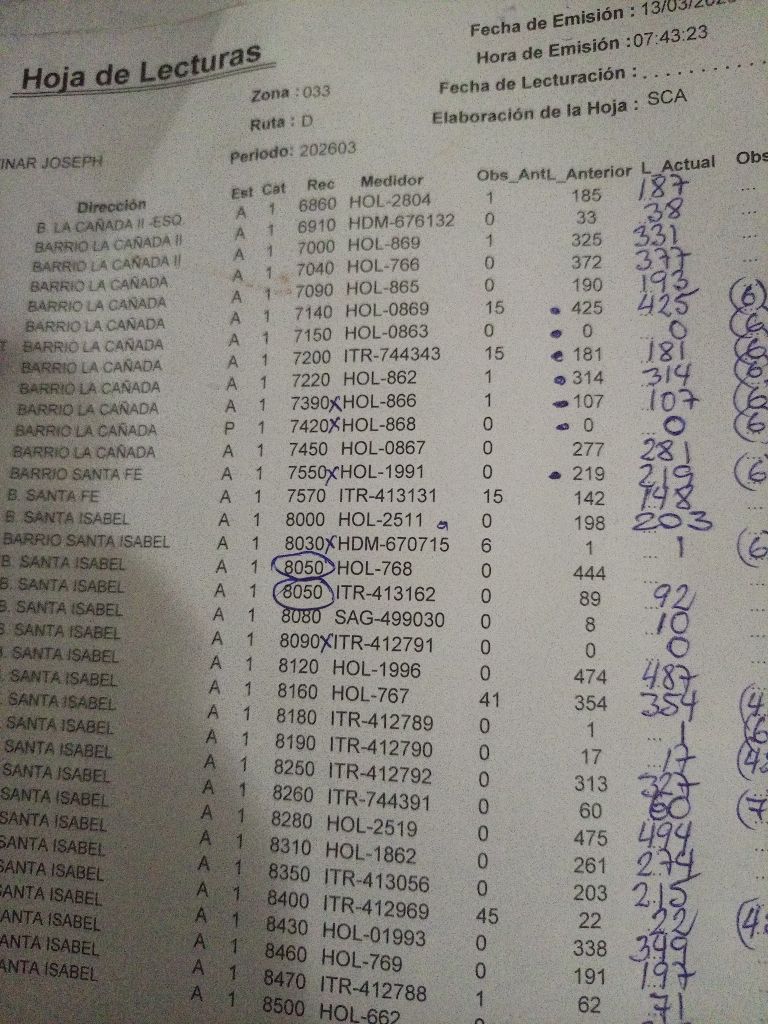 Hoja de Lecturas
Fecha de Emisión : 13/03/
Hora de Emisión :07:43:23
Fecha de Lecturación : ...........
Elaboración de la Hoja : SCA
Zona : 033
Ruta : D
Periodo: 202603
INAR JOSEPH
Dirección Est Cat Rec Medidor Obs_Ant L_Anterior L_Actual Obs
B. LA CAÑADA II -ESQ A 1 6860 HOL-2804 1 185 187 ...
BARRIO LA CAÑADA II A 1 6910 HDM-676132 0 33 38 ...
BARRIO LA CAÑADA II A 1 7000 HOL-869 1 325 331 ...
BARRIO LA CAÑADA A 1 7040 HOL-766 0 372 377 ...
BARRIO LA CAÑADA A 1 7090 HOL-865 0 190 193
BARRIO LA CAÑADA A 1 7140 HOL-0869 15 425 425 6
BARRIO LA CAÑADA A 1 7150 HOL-0863 0 0 0 6
BARRIO LA CAÑADA A 1 7200 ITR-744343 15 181 181 6
BARRIO LA CAÑADA A 1 7220 HOL-862 1 314 314 6
BARRIO LA CAÑADA A 1 7390x HOL-866 1 107 107 6
BARRIO LA CAÑADA P 1 7420x HOL-868 0 0 0 6
BARRIO LA CAÑADA A 1 7450 HOL-0867 0 277 281
BARRIO SANTA FE A 1 7550x HOL-1991 0 219 219 6
B. SANTA FE A 1 7570 ITR-413131 15 142 148
B. SANTA ISABEL A 1 8000 HOL-2511 0 198 203
BARRIO SANTA ISABEL A 1 8030x HDM-670715 6 1 1 6
B. SANTA ISABEL A 1 8050 HOL-768 0 444
B. SANTA ISABEL A 1 8050 ITR-413162 0 89 92
B. SANTA ISABEL A 1 8080 SAG-499030 0 8 10
B. SANTA ISABEL A 1 8090x ITR-412791 0 0 0
B. SANTA ISABEL A 1 8120 HOL-1996 0 474 487
B. SANTA ISABEL A 1 8160 HOL-767 41 354 354
SANTA ISABEL A 1 8180 ITR-412789 0 1 1 6
SANTA ISABEL A 1 8190 ITR-412790 0 17 17
SANTA ISABEL A 1 8250 ITR-412792 0 313 327
SANTA ISABEL A 1 8260 ITR-744391 0 60 60 7
SANTA ISABEL A 1 8280 HOL-2519 0 475 494
SANTA ISABEL A 1 8310 HOL-1862 0 261 274
SANTA ISABEL A 1 8350 ITR-413056 0 203 215
SANTA ISABEL A 1 8400 ITR-412969 45 22 22
SANTA ISABEL A 1 8430 HOL-01993 0 338 349
ANTA ISABEL A 1 8460 HOL-769 0 191 197
ANTA ISABEL A 1 8470 ITR-412788 1 62 71
A 1 8500 HOL-662